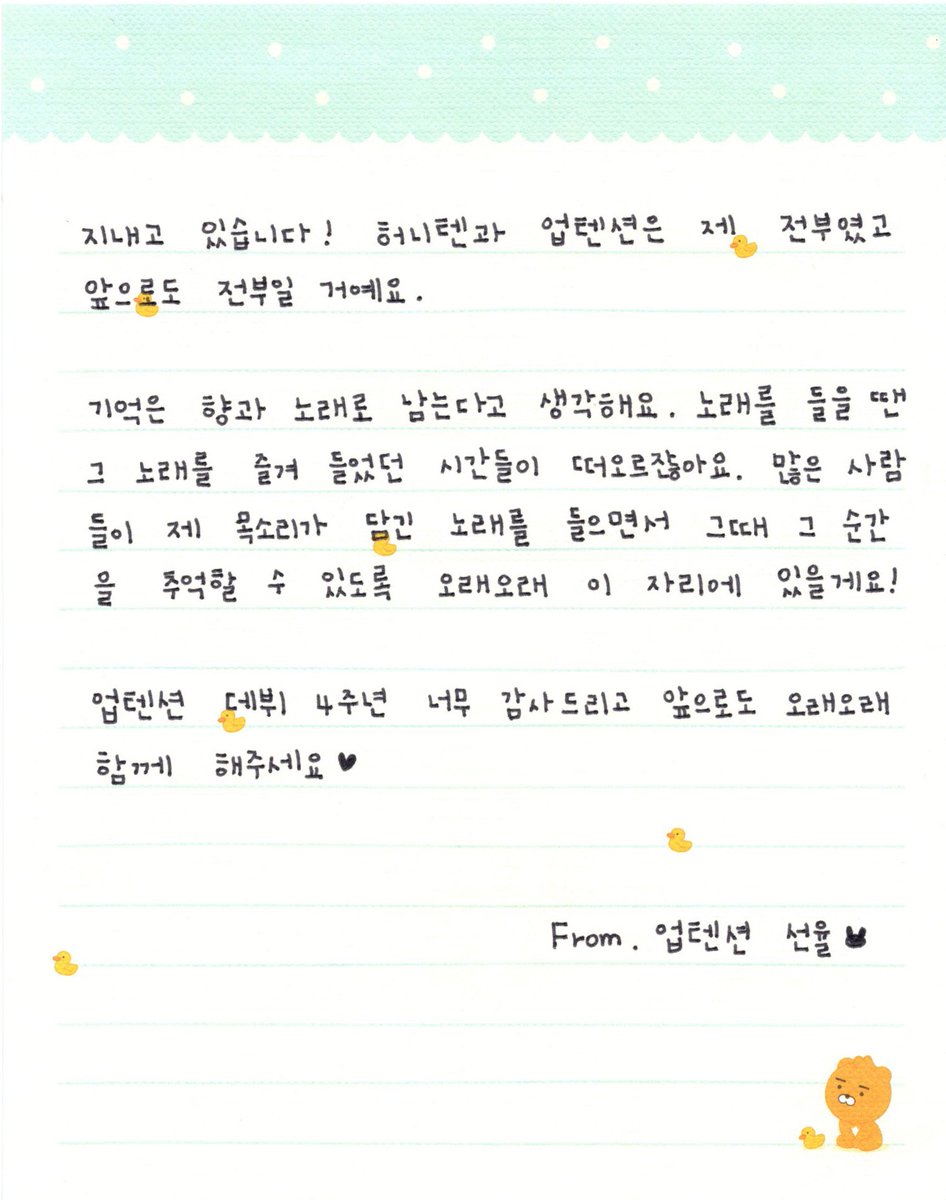 지내고 있습니다! 허니텐과 업텐션은 제 전부였고
앞으로도 전부일 거예요.
기억은 향과 노래로 남는다고 생각해요. 노래를 들을 땐
그 노래를 즐겨 들었던 시간들이 떠오르잖아요. 많은 사람
들이 제 목소리가 담긴 노래를 들으면서 그때 그 순간
을 추억할 수 있도록 오래오래 이 자리에 있을게요!
업텐션 데뷔 4주년 너무 감사드리고 앞으로도 오래오래
함께 해주세요♥
From. 업텐션 선율